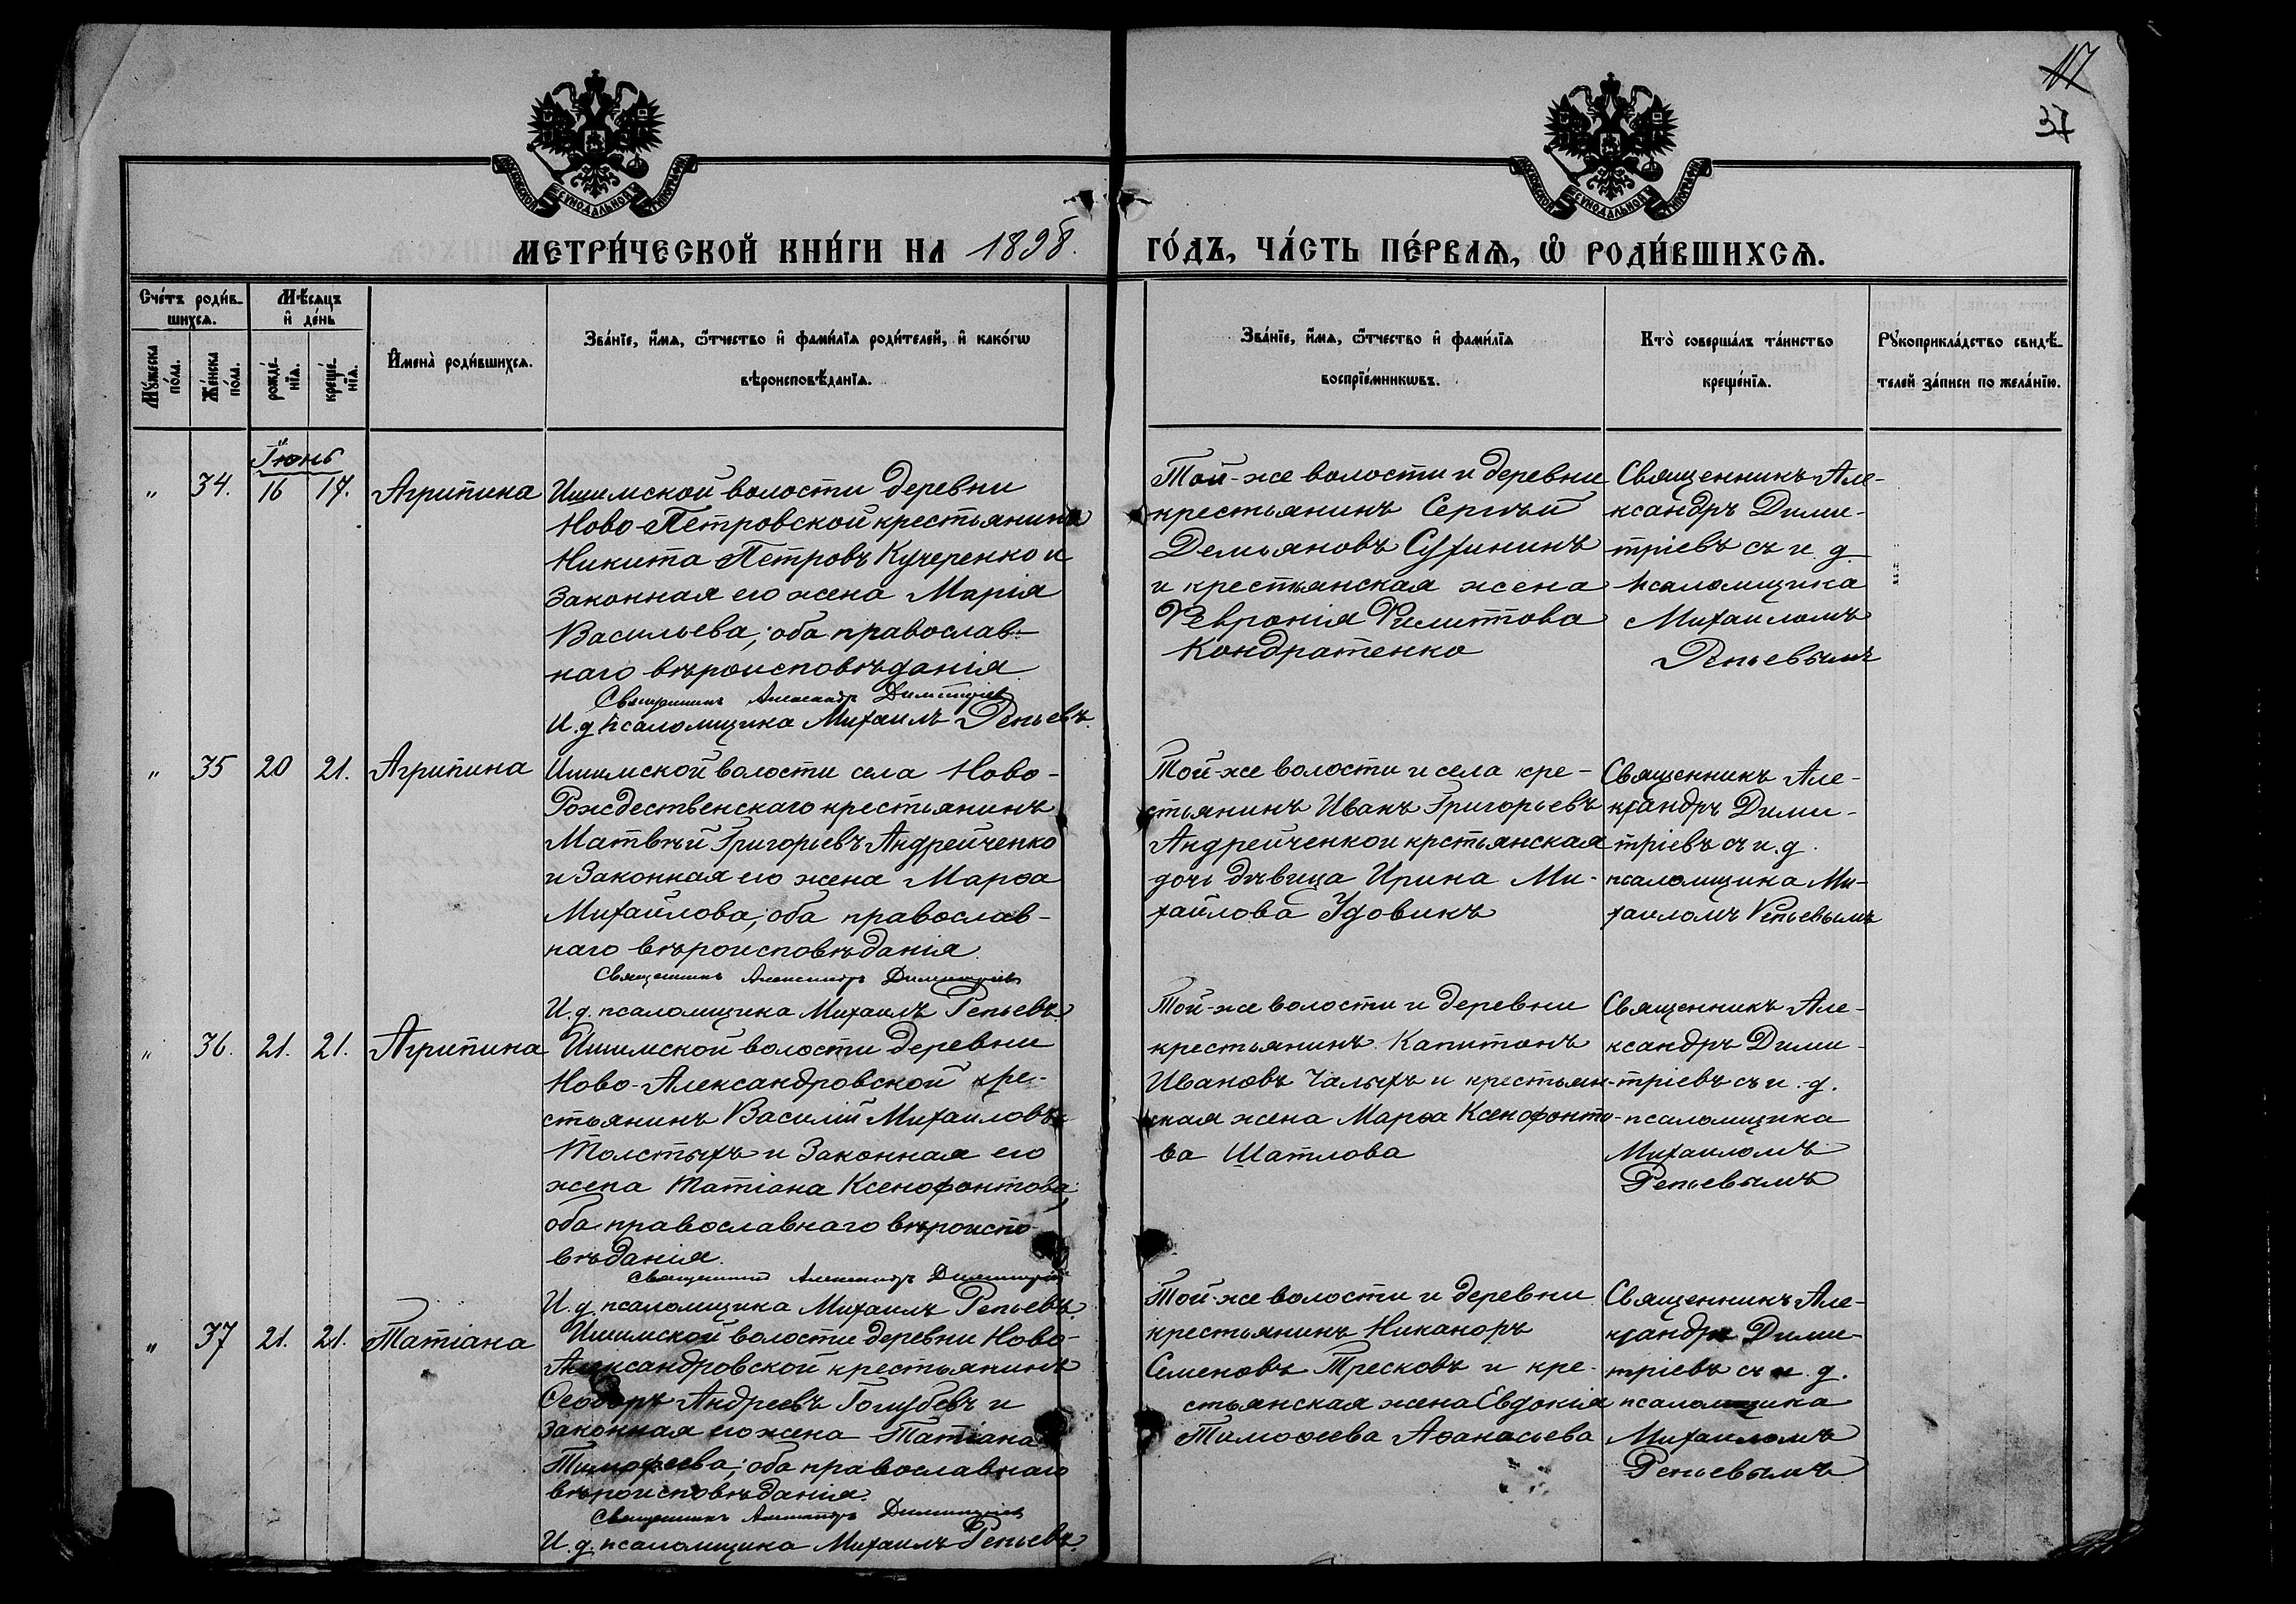 17
37
МОСКОВСКОЙ СѴНОДАЛЬНОЙ ТИПОГРАФІИ
МОСКОВСКОЙ СѴНОДАЛЬНОЙ ТИПОГРАФІИ
МЕТРИ́ЧЕСКОЙ КНИ́ГИ НА 1898.
ГО́ДЪ, ЧА́СТЬ ПЕ́РВАѦ, Ѽ РОДИ́ВШИХСѦ.
Сче́тъ роди́в-
шихсѧ.
Мꙋ́жеска по́ла.
Же́нска пола.
Мѣ́сѧцъ
и҆ де́нь
рожде́-
нїѧ.
креще́-
нїѧ.
И҆мена̀ роди́вшихсѧ.
Зва́нїе, и҆́мѧ, ѻ҆́тчество и҆ фами́лїѧ роди́телей, и҆ како́гѡ
вѣроисповѣ́данїѧ.
Зва́нїе, и҆́мѧ, ѻ҆́тчество и҆ фами́лїѧ
воспрїе́мникѡвъ.
Кто̀ соверша́лъ та́инство
креще́нїѧ.
Рꙋкоприкла́дство свидѣ́-
телей за́писи по жела́нїю.
Іюнь
" 34. 16 17. Агрипина
Ишимской волости деревни
Ново-Петровской крестьянинъ
Никита Петровъ Кучеренко и
законная его жена Марія
Васильева, оба православ-
наго вѣроисповѣданія
Священникъ Александръ Димитріевъ
И.д. псаломщика Михаилъ Репьевъ.
Той-же волости и деревни
крестьянинъ Сергѣй
Демьяновъ Сухининъ
и крестьянская жена
Февронія Филиппова
Кондратенко
Священникъ Але-
ксандръ Дими-
тріевъ съ и. д.
псаломщика
Михаиломъ
Репьевымъ
" 35 20 21. Агрипина
Ишимской волости села Ново-
Рождественскаго крестьянинъ
Матвѣй Григорьевъ Андрейченко
и законная его жена Марѳа
Михайлова, оба православ-
наго вѣроисповѣданія.
Священникъ Александръ Димитріевъ
И.д. псаломщика Михаилъ Репьевъ.
Той-же волости и села кре-
стьянинъ Иванъ Григорьевъ
Андрейченко и крстьянская
дочь дѣвица Ирина Ми-
хайлова Удовикъ
Священникъ Але-
ксандръ Дими-
тріевъ съ и.д.
псаломщика Ми-
хаиломъ Репьевымъ
" 36. 21. 21. Агрипина
Ишимской волости деревни
Ново-Александровской кре-
стьянинъ Василій Михаиловъ
Толстыхъ и законная его
жена Татіана Ксенофонтова,
оба православнаго вѣроиспо-
вѣданія.
Священникъ Александръ Димитріевъ
И.д. псаломщика Михаилъ Репьевъ.
Той-же волости и деревни
крестьянинъ Капитонъ
Ивановъ Чалыхъ и крестьян-
ская жена Марѳа Ксенофонто-
ва Шатлова
Священникъ Але-
ксандръ Дими-
тріевъ съ и.д.
псаломщика
Михаиломъ
Репьевымъ
" 37 21. 21. Татіана
Ишимской волости деревни Ново-
Александровской крестьянинъ
Ѳеодоръ Андреевъ Голубевъ и
законная его жена Татіана
Тимофеева, оба православнаго
вѣроисповѣданія.
Священникъ Александръ Димитріевъ
И.д. псаломщика Михаилъ Репьевъ.
Той-же волости и деревни
крестьянинъ Никаноръ
Семеновъ Тресковъ и кре-
стьянская жена Евдокія
Тимоѳеева Аѳанасьева
Священникъ Але-
ксандръ Дими-
тріевъ съ и. д.
псаломщика
Михаиломъ
Репьевымъ